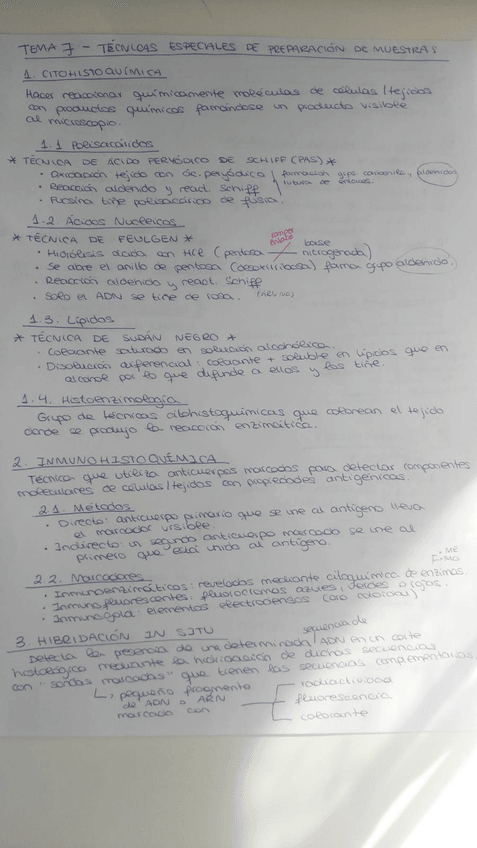 TEMA 7 - TÉCNICAS ESPECIALES DE PREPARACIÓN DE MUESTRAS
1. CITOHISTOQUÍMICA
Hacer reaccionar químicamente moléculas de células/tejidos
con productos químicos formándose un producto visible
al microscopio.
1.1 Polisacáridos
* TÉCNICA DE ÁCIDO PERYÓDICO DE SCHIFF (PAS) *
· Oxidación tejido con ác. peryódico / formación grps carbonilo, aldehídos
rotura de enlaces.
· Reacción aldehído y react. Schiff
· Fucsina tiñe polisacárido de fusia.
1.2 Ácidos Nucleicos
* TÉCNICA DE FEULGEN *
romper enlace
· Hidrólisis ácida con HCl (pentosa — base nitrogenada)
· Se abre el anillo de pentosa (desoxirribosa) forma grupo aldehído.
· Reacción aldehído y react. Schiff
· Solo el ADN se tiñe de rosa. (ARN NO)
1.3. Lípidos
* TÉCNICA DE SUDÁN NEGRO *
· Colorante saturado en solución alcohólica.
· Disolución diferencial: colorante + soluble en lípidos que en
alcohol por lo que difunde a ellos y los tiñe.
1.4. Histoenzimología
Grupo de técnicas citohistoquímicas que colorean el tejido
donde se produjo la reacción enzimática.
2. INMUNOHISTOQUÍMICA
Técnica que utiliza anticuerpos marcados para detectar componentes
moleculares de células/tejidos con propiedades antigénicas.
2.1. Métodos
· Directo: anticuerpo primario que se une al antígeno lleva
el marcador visible.
· Indirecto: un segundo anticuerpo marcado se une al
primero que está unido al antígeno.
2.2. Marcadores
· ME
· Inmunoenzimáticos: revelados mediante citoquímica de enzimas.
· Inmunofluorescentes: fluorocromos azules, verdes o rojos.
· Inmunogold: elementos electrodensos (oro coloidal)
3. HIBRIDACIÓN IN SITU
secuencia de
Detecta la presencia de una determinada / ADN en un corte
histológico mediante la hibridación de dichas secuencias
con "sondas marcadas" que tienen las secuencias complementarias
pequeño fragmento
de ADN o ARN
marcado con
radiactividad
fluorescencia
colorante